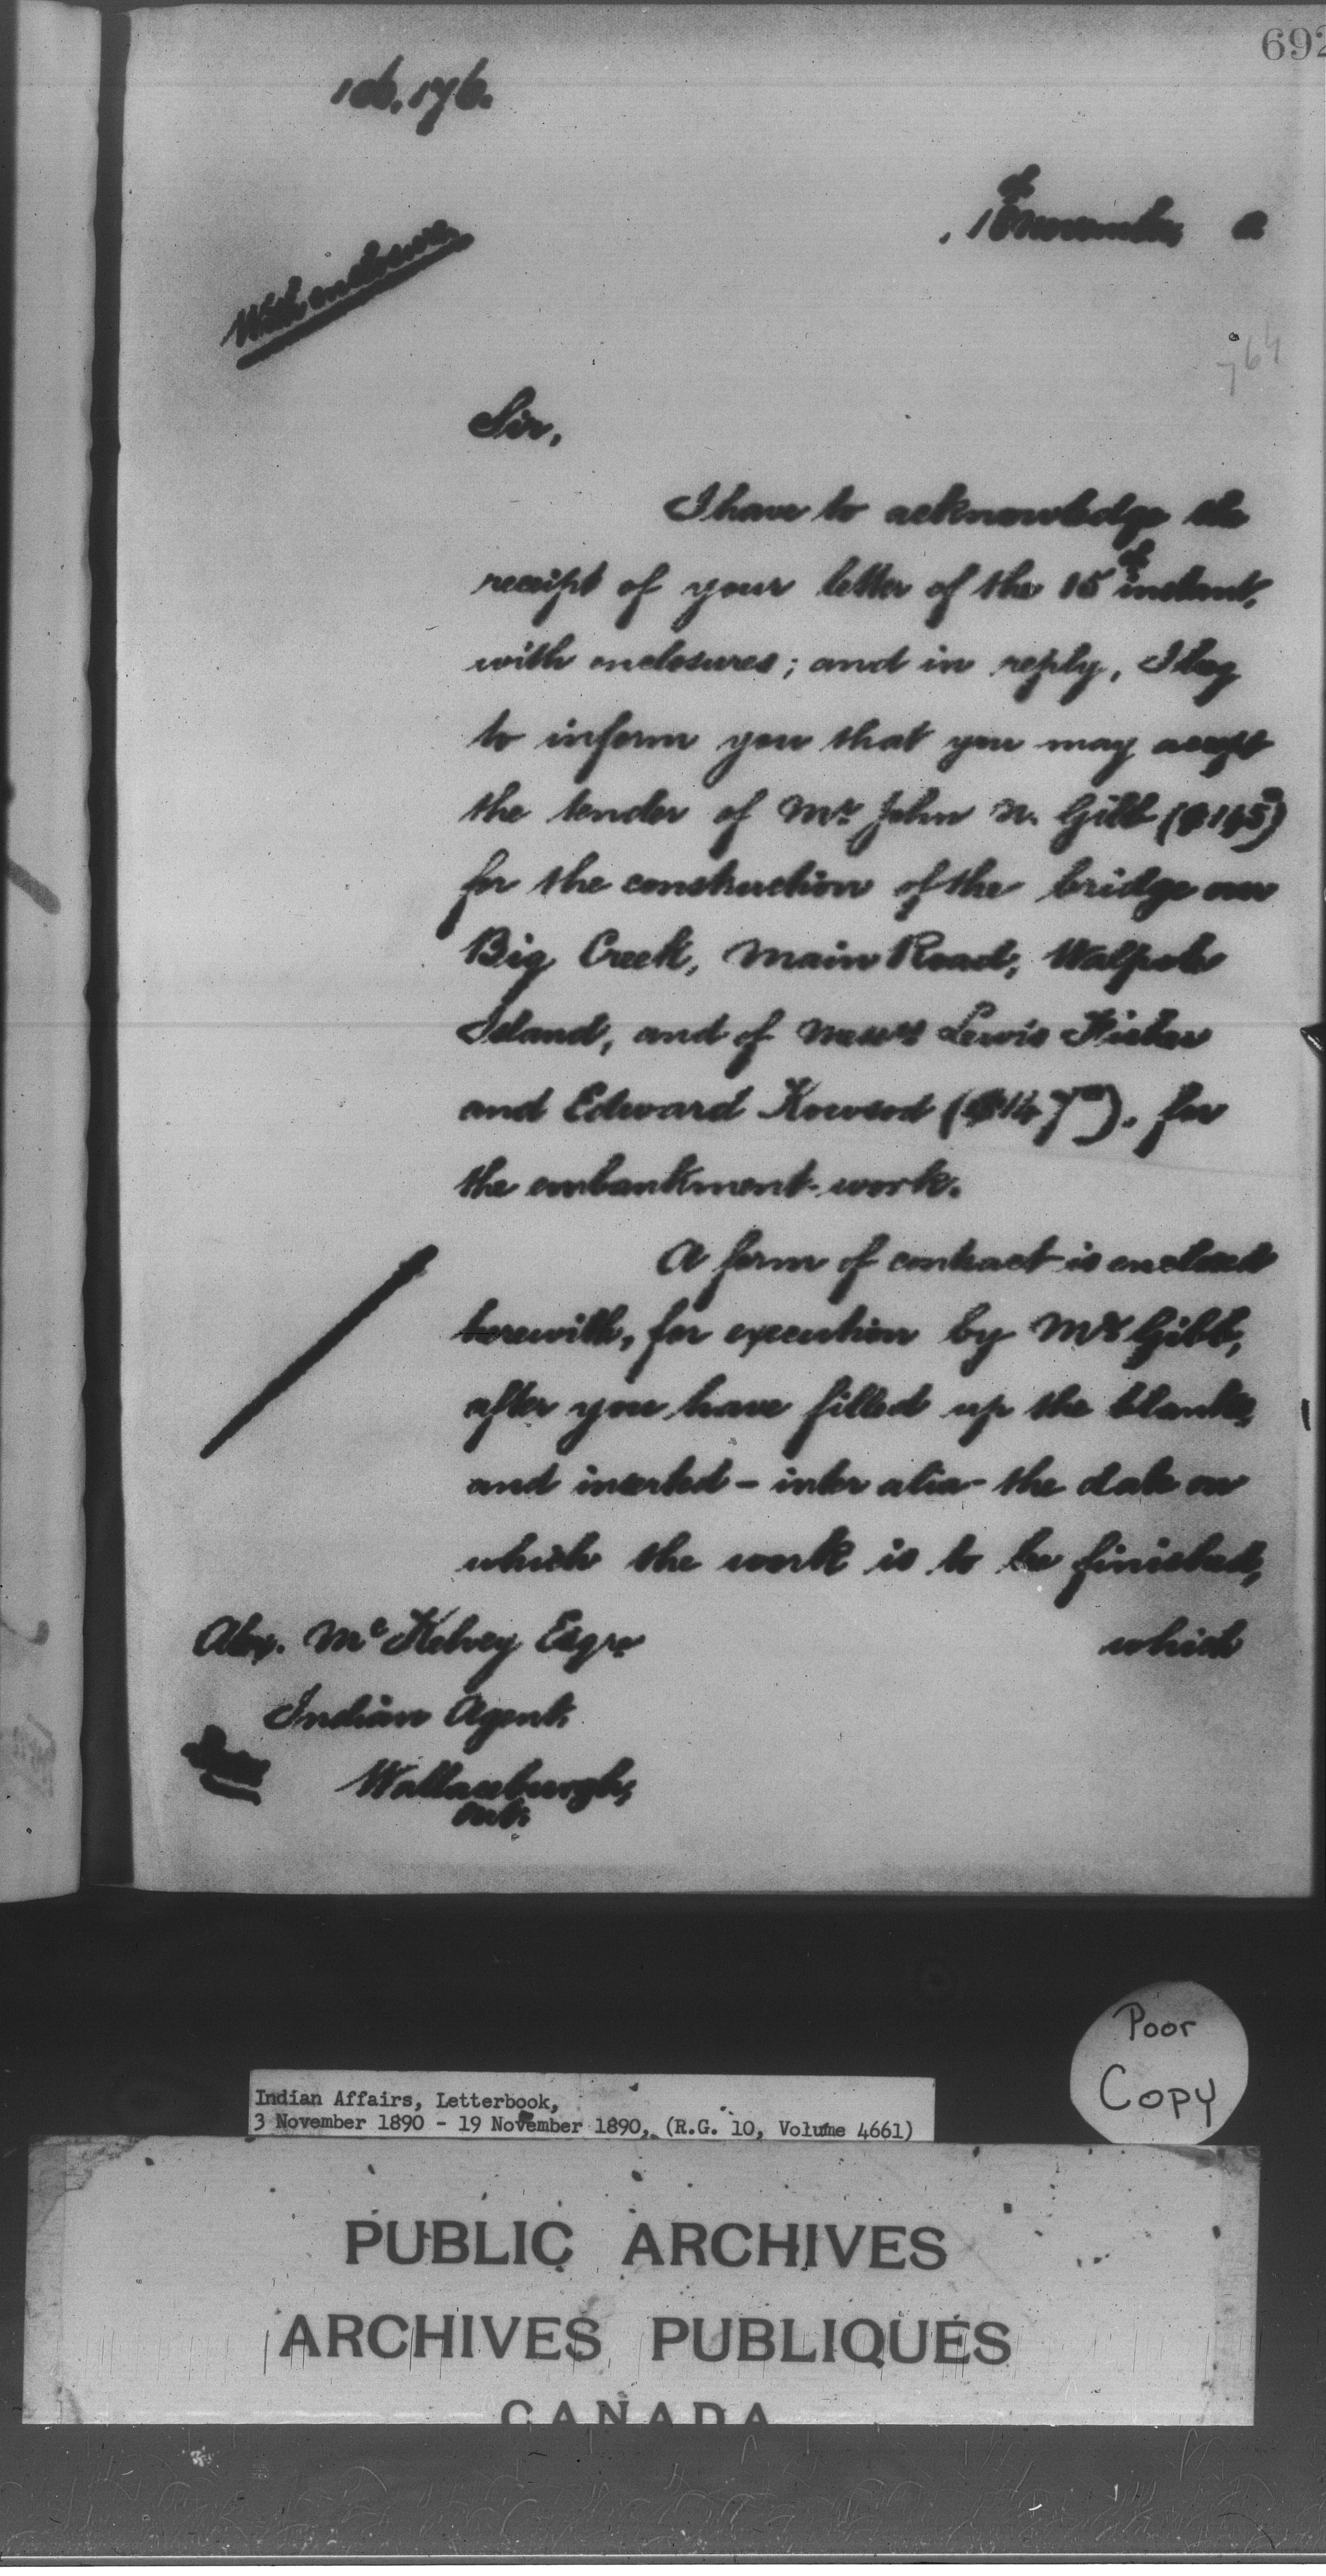 692
106.176.
18th November, 0
With enclosure.
764
Sir,
I have to acknowledge the
receipt of your letter of the 15th instant,
with enclosures; and in reply, I beg
to inform you that you may accept
the tender of Mr John N. Gibb
for the construction of the bridge over
Big Creek, Main Road, Walpole
Island, and of Messrs Lewis Fisher
and Edward
for
the embankment work.
A form of contract is enclosed
herewith, for execution by Mr Gibb,
after you have filled up the blanks,
and inserted - inter alia - the date on
which the work is to be finished,
which
Alex. McKelvey Esqre
Indian Agent,
Wallaceburgh,
Ont.
Poor
Copy
Indian Affairs, Letterbook,
3 November 1890 - 19 November 1890, (R.G. 10, Volume 4661)
PUBLIC ARCHIVES
ARCHIVES PUBLIQUES
CANADA